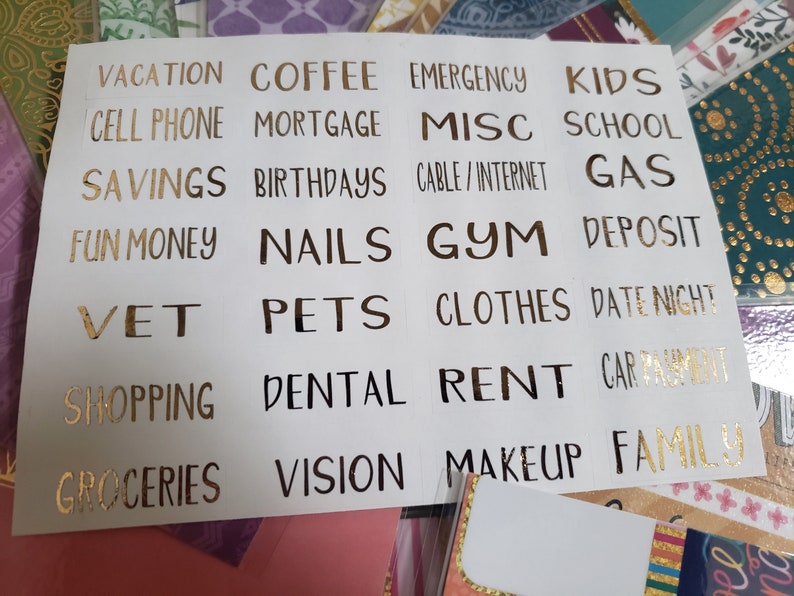 VACATION COFFEE EMERGENCY KIDS
CELL PHONE MORTGAGE MISC SCHOOL
SAVINGS BIRTHDAYS CABLE / INTERNET GAS
FUN MONEY NAILS GYM DEPOSIT
VET PETS CLOTHES DATE NIGHT
SHOPPING DENTAL RENT CAR PAYMENT
GROCERIES VISION MAKEUP FAMILY